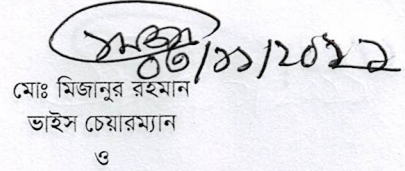 ০৩/১১/২০২২
মোঃ মিজানুর রহমান
ভাইস চেয়ারম্যান
ও